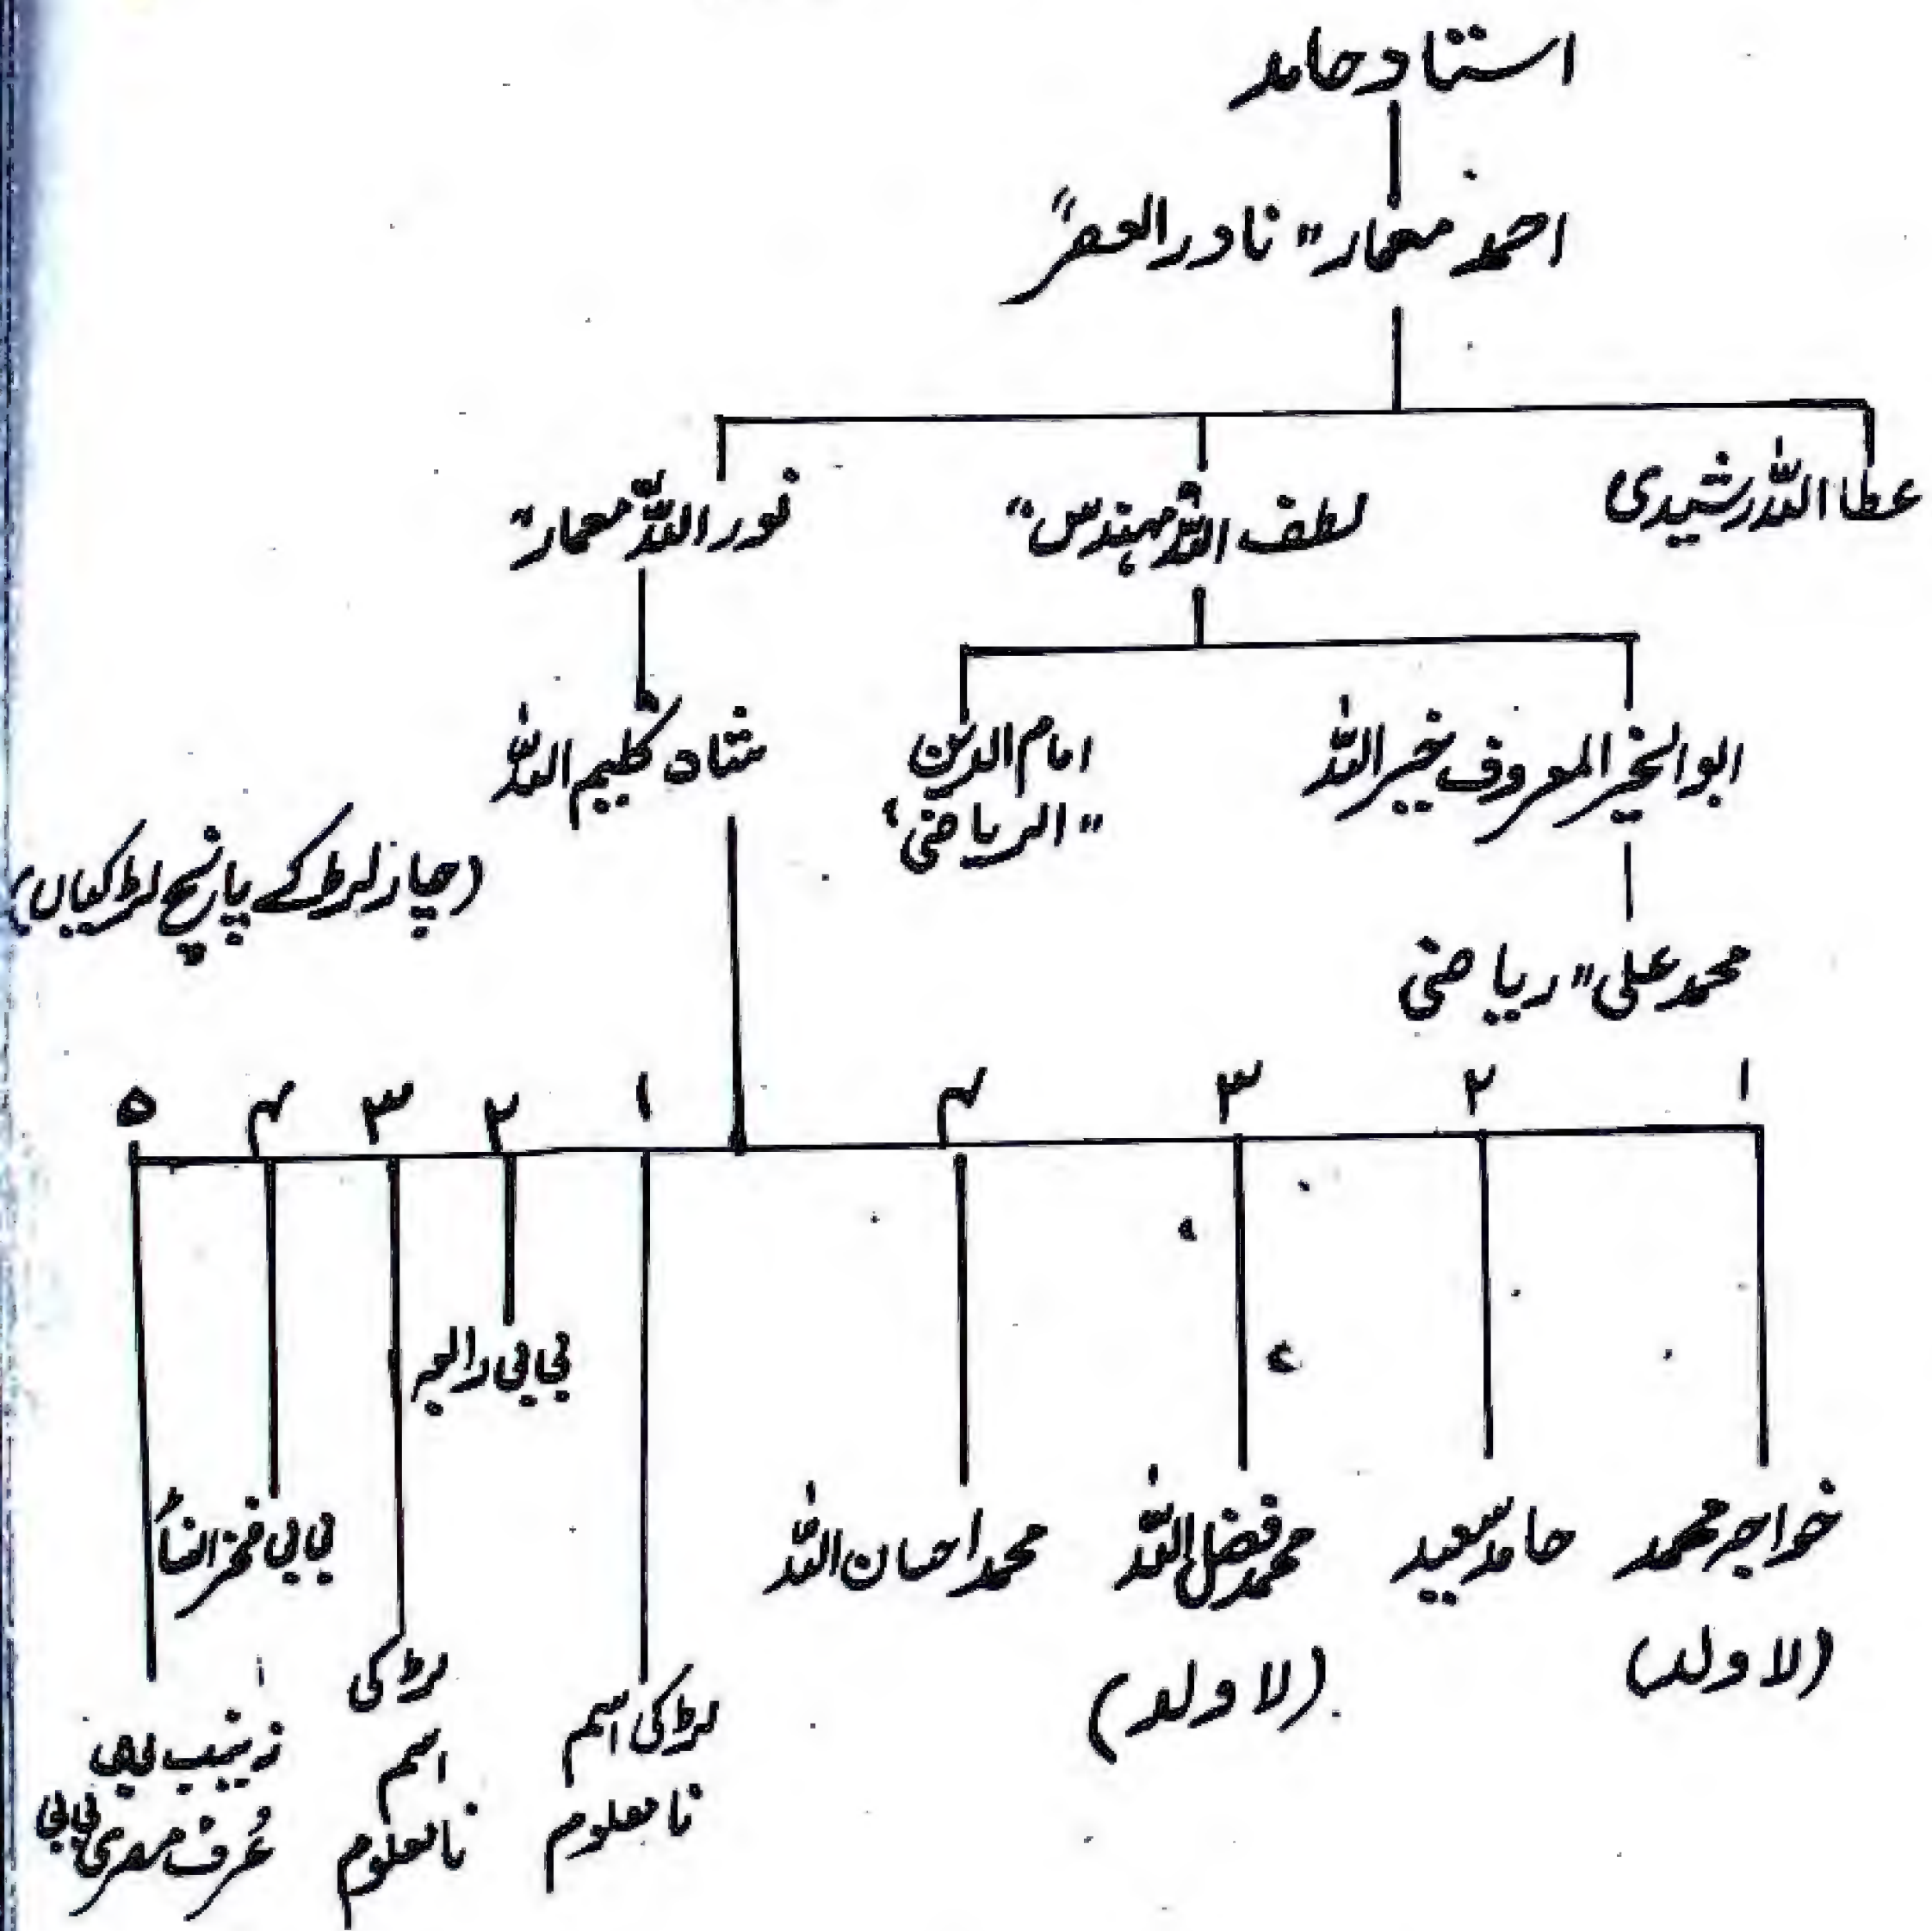 استاد حامد
احمد معمار "نادر العصر"
عطا اللہ رشیدی
لطف اللہ مہندس"
نور اللہ معمار"
ابوالخیر المعروف خیر اللہ
امام الدین
"الریاضی"
شاہ کلیم اللہ
(چار لڑکے پانچ لڑکیاں)
محمد علی "ریاضی
۱ ۲ ۳ ۴ ۱ ۲ ۳ ۴ ۵
خواجہ محمد
(لا ولد)
حامد سعید
محمد فضل اللہ
(لا ولد)
محمد احسان اللہ
لڑکی اسم
نامعلوم
بی بی رابعہ
لڑکی
اسم
نامعلوم
بی بی فخر النساء
زینب بی بی
عُرف مصری بی بی